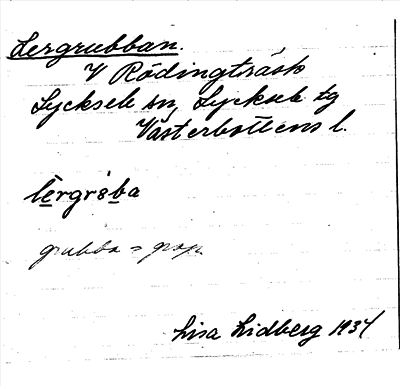 Lergrubban.
V Rödingträsk
Lycksele sn, Lycksele tg
Västerbottens l.
lèrgrɞba
grubba = grop.
Lisa Lidberg 1934